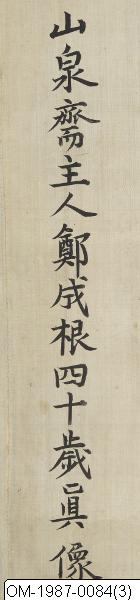 山泉齋主人鄭成根四十歲眞像
OM-1987-0084(3)